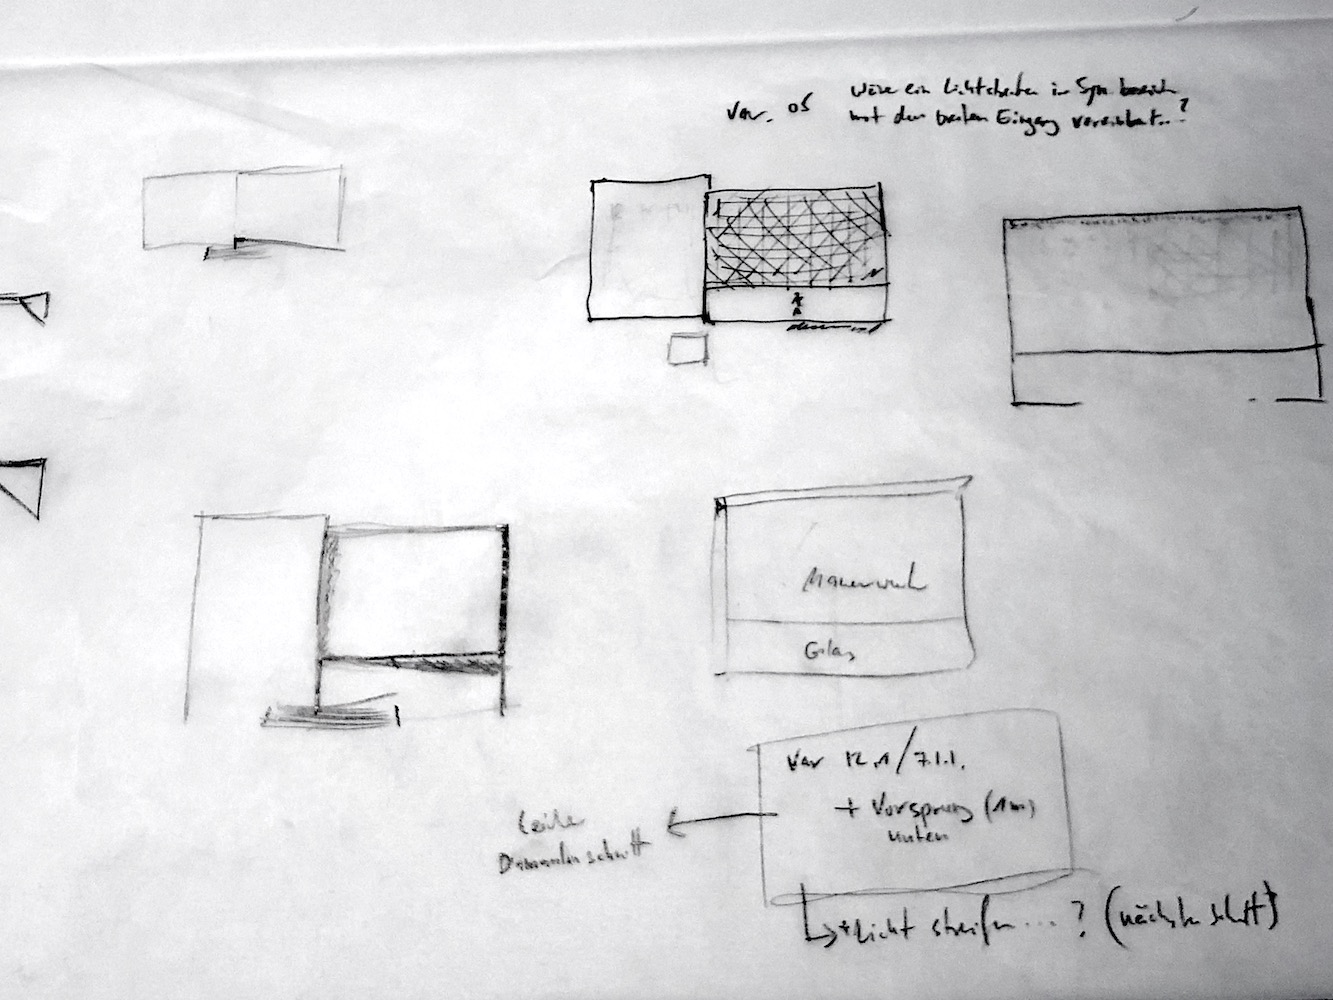 Var. 05
Wäre ein Lichtstreifen im bereich
mit dem breiten Eingang vereinbar...?
Mauerwerk
Glas
Var 12.1/7.1.1.
+ Vorsprung (1m)
unten
schnitt
+Licht streifen...? (nächster schritt)